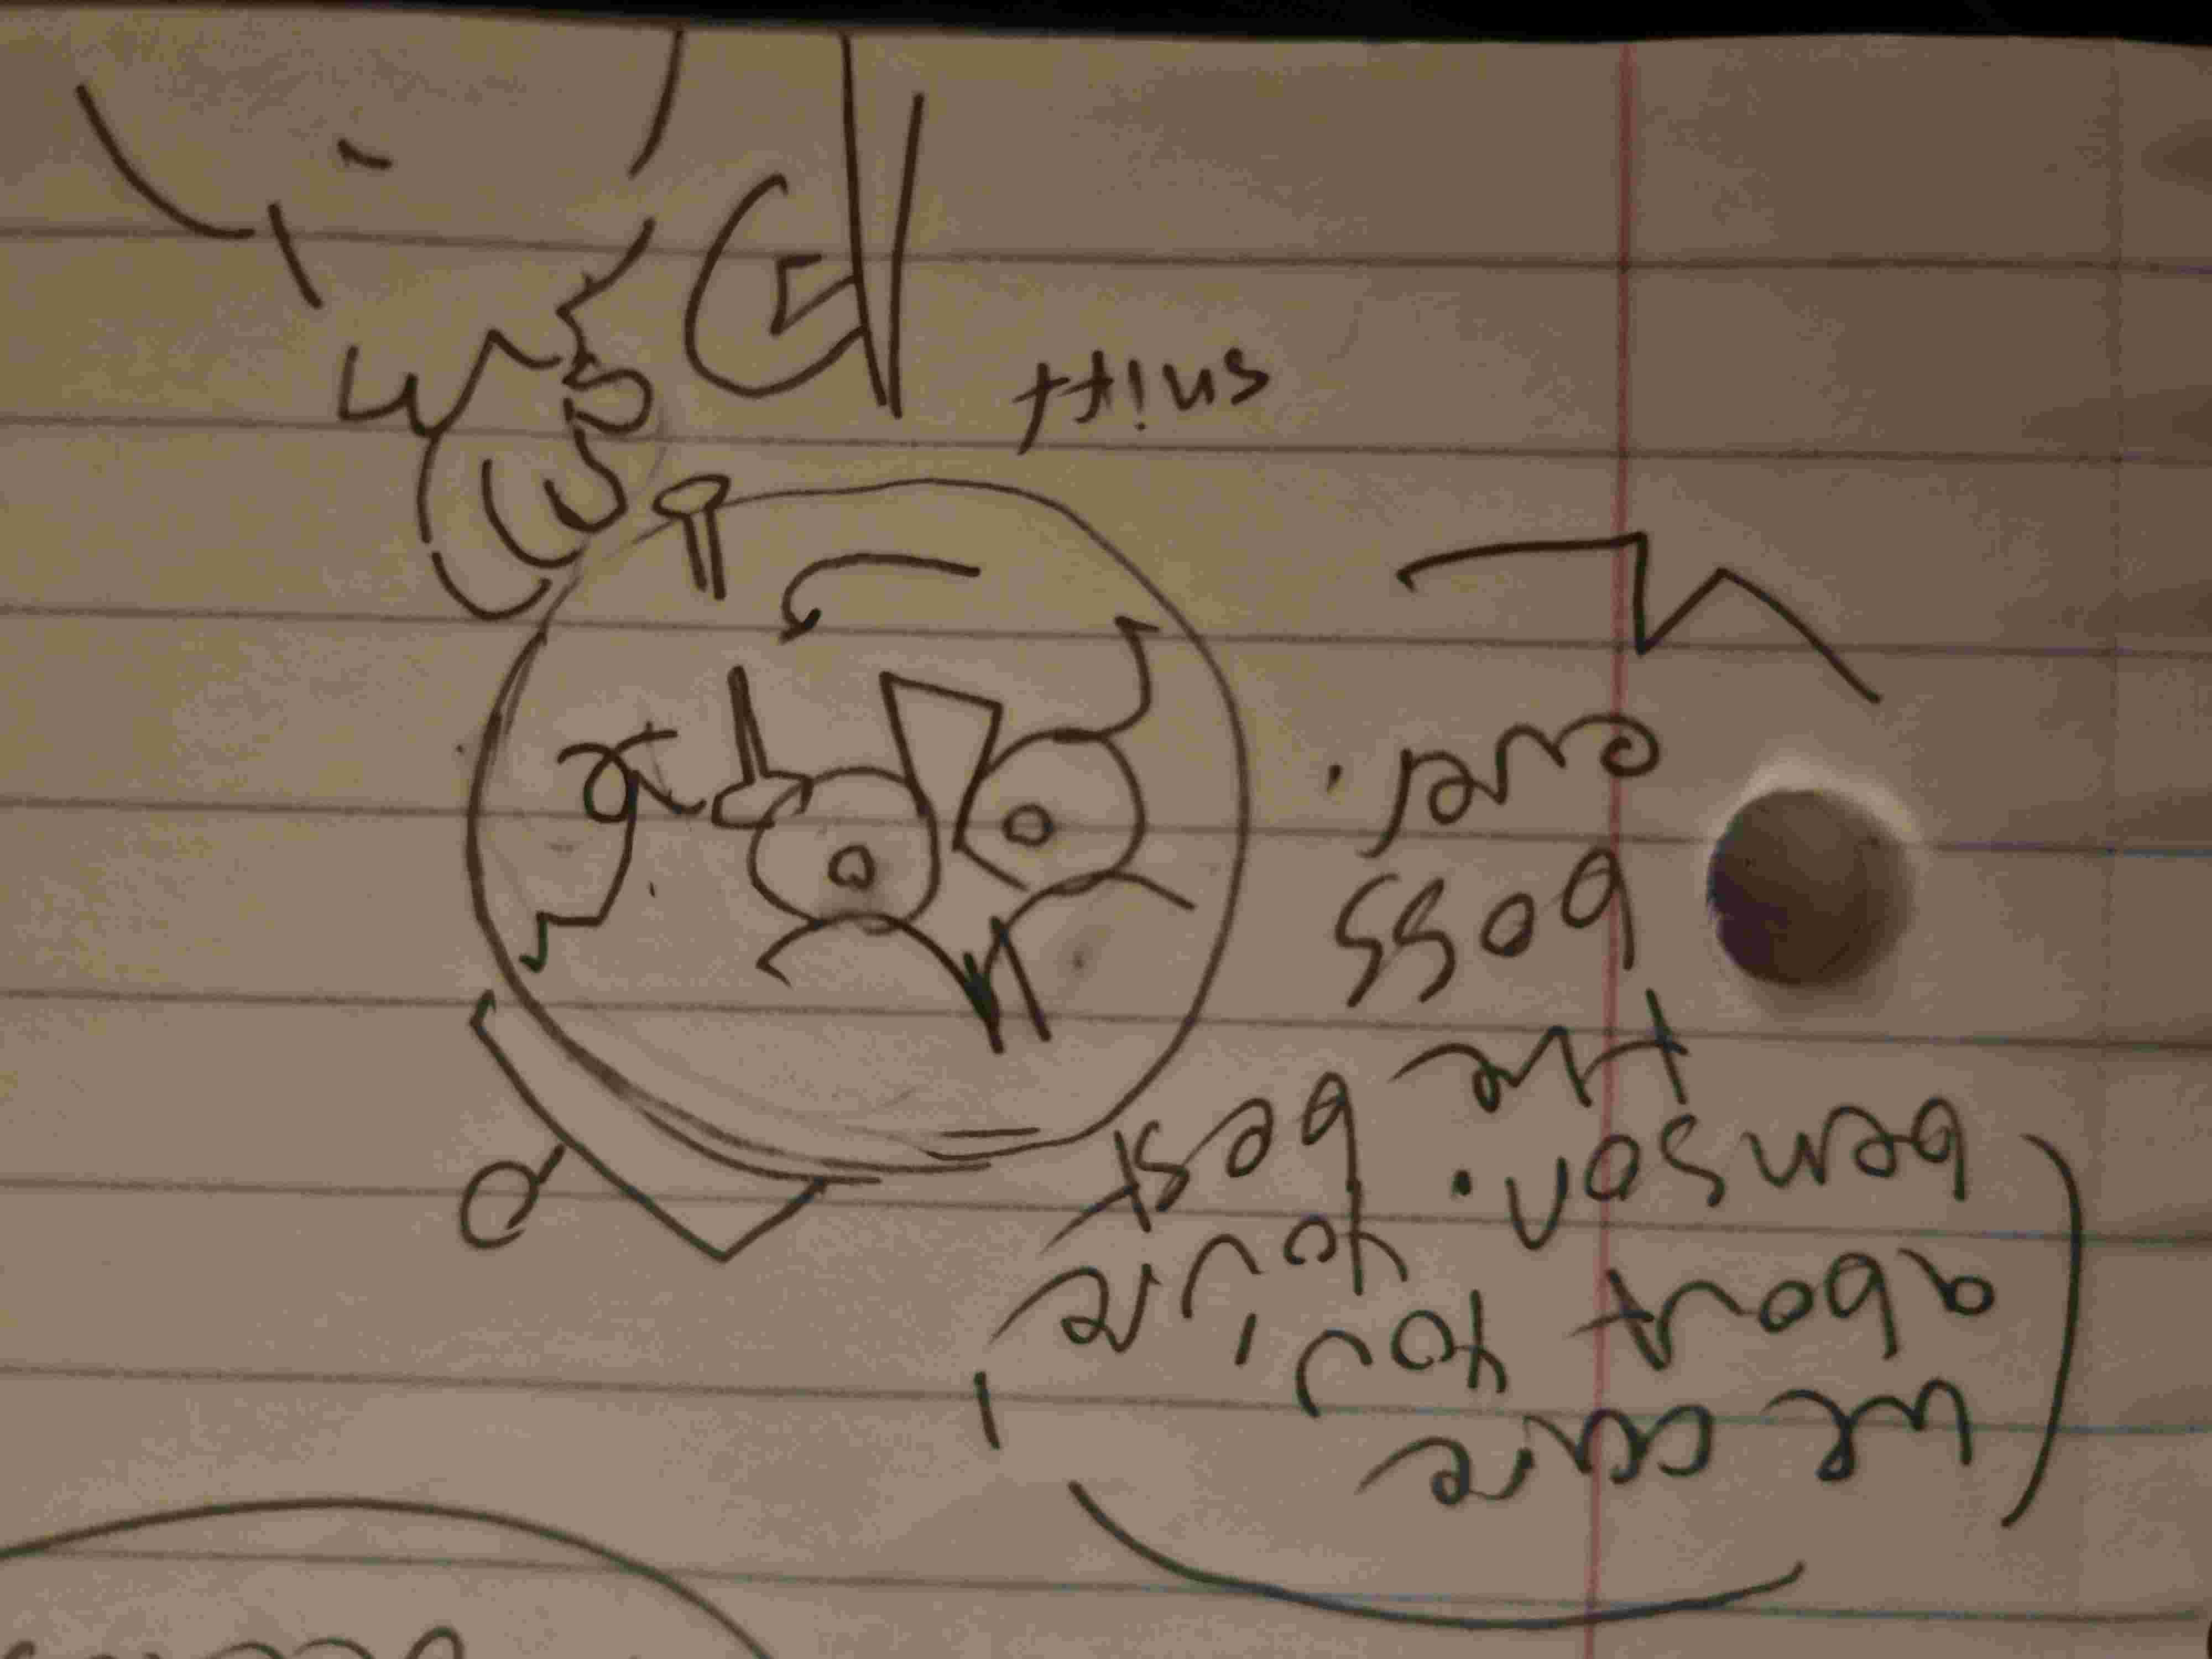 we care
about you,
benson. you're
the best
boss
ever.
sniff